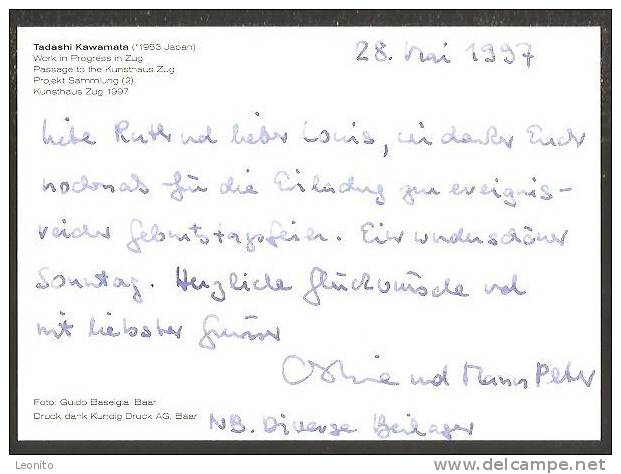 Tadashi Kawamata (*1953 Japan)
Work in Progress in Zug
Passage to the Kunsthaus Zug
Projekt Sammlung (2)
Kunsthaus Zug 1997
28. Mai 1997
Liebe Ruth und lieber Louis, wir danken Euch
nochmals für die Einladung zur ereignis-
reichen Geburtstagsfeier. Ein wunderschöner
Sonntag. Herzliche Glückwünsche und
mit liebsten Grüssen
und Mann Peter
Foto: Guido Baselgia, Baar
Druck dank Kündig Druck AG, Baar
NB. Diverse Beilagen
Leonito
delcampe.net